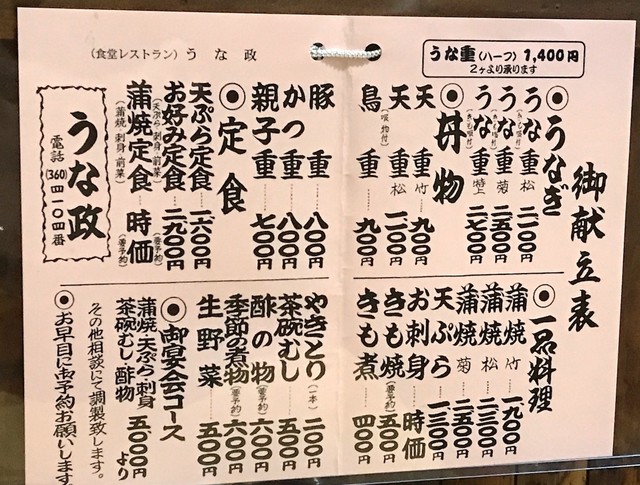 うな重(ハーフ) 1,400円
2ヶより承ります
(食堂レストラン) うな政
御献立表
◉うなぎ
うな重 松 (きも吸付) 二一〇〇円
うな重 菊 (きも吸付) 二五〇〇円
うな重 特上 (きも吸付) 二七〇〇円
◉丼物
天重 竹 九〇〇円
天重 松 一一〇〇円
鳥重 (吸物付) 九〇〇円
豚重 八〇〇円
かつ重 八〇〇円
親子重 七〇〇円
◉定食
天ぷら定食 一六〇〇円
お好み定食 (天ぷら 刺身 前菜) 二九〇〇円 (要予約)
蒲焼定食 (蒲焼 刺身 前菜) 時価 (要予約)
うな政
電話(360)四一〇四番
◉一品料理
蒲焼 竹 一九〇〇円
蒲焼 松 二三〇〇円
蒲焼 菊 二五〇〇円
天ぷら 一三〇〇円
お刺身 時価
きも焼 (要予約) 五〇〇円
きも煮 四〇〇円
やきとり (一本) 二〇〇円
茶碗むし 五〇〇円
酢の物 (要予約) 六〇〇円
季節の煮物 (要予約) 六〇〇円
生野菜 五〇〇円
◉御宴会コース
蒲焼・天ぷら・刺身
茶碗むし・酢物 五〇〇〇円より
その他相談にて調製致します。
◉お早目に御予約お願いします